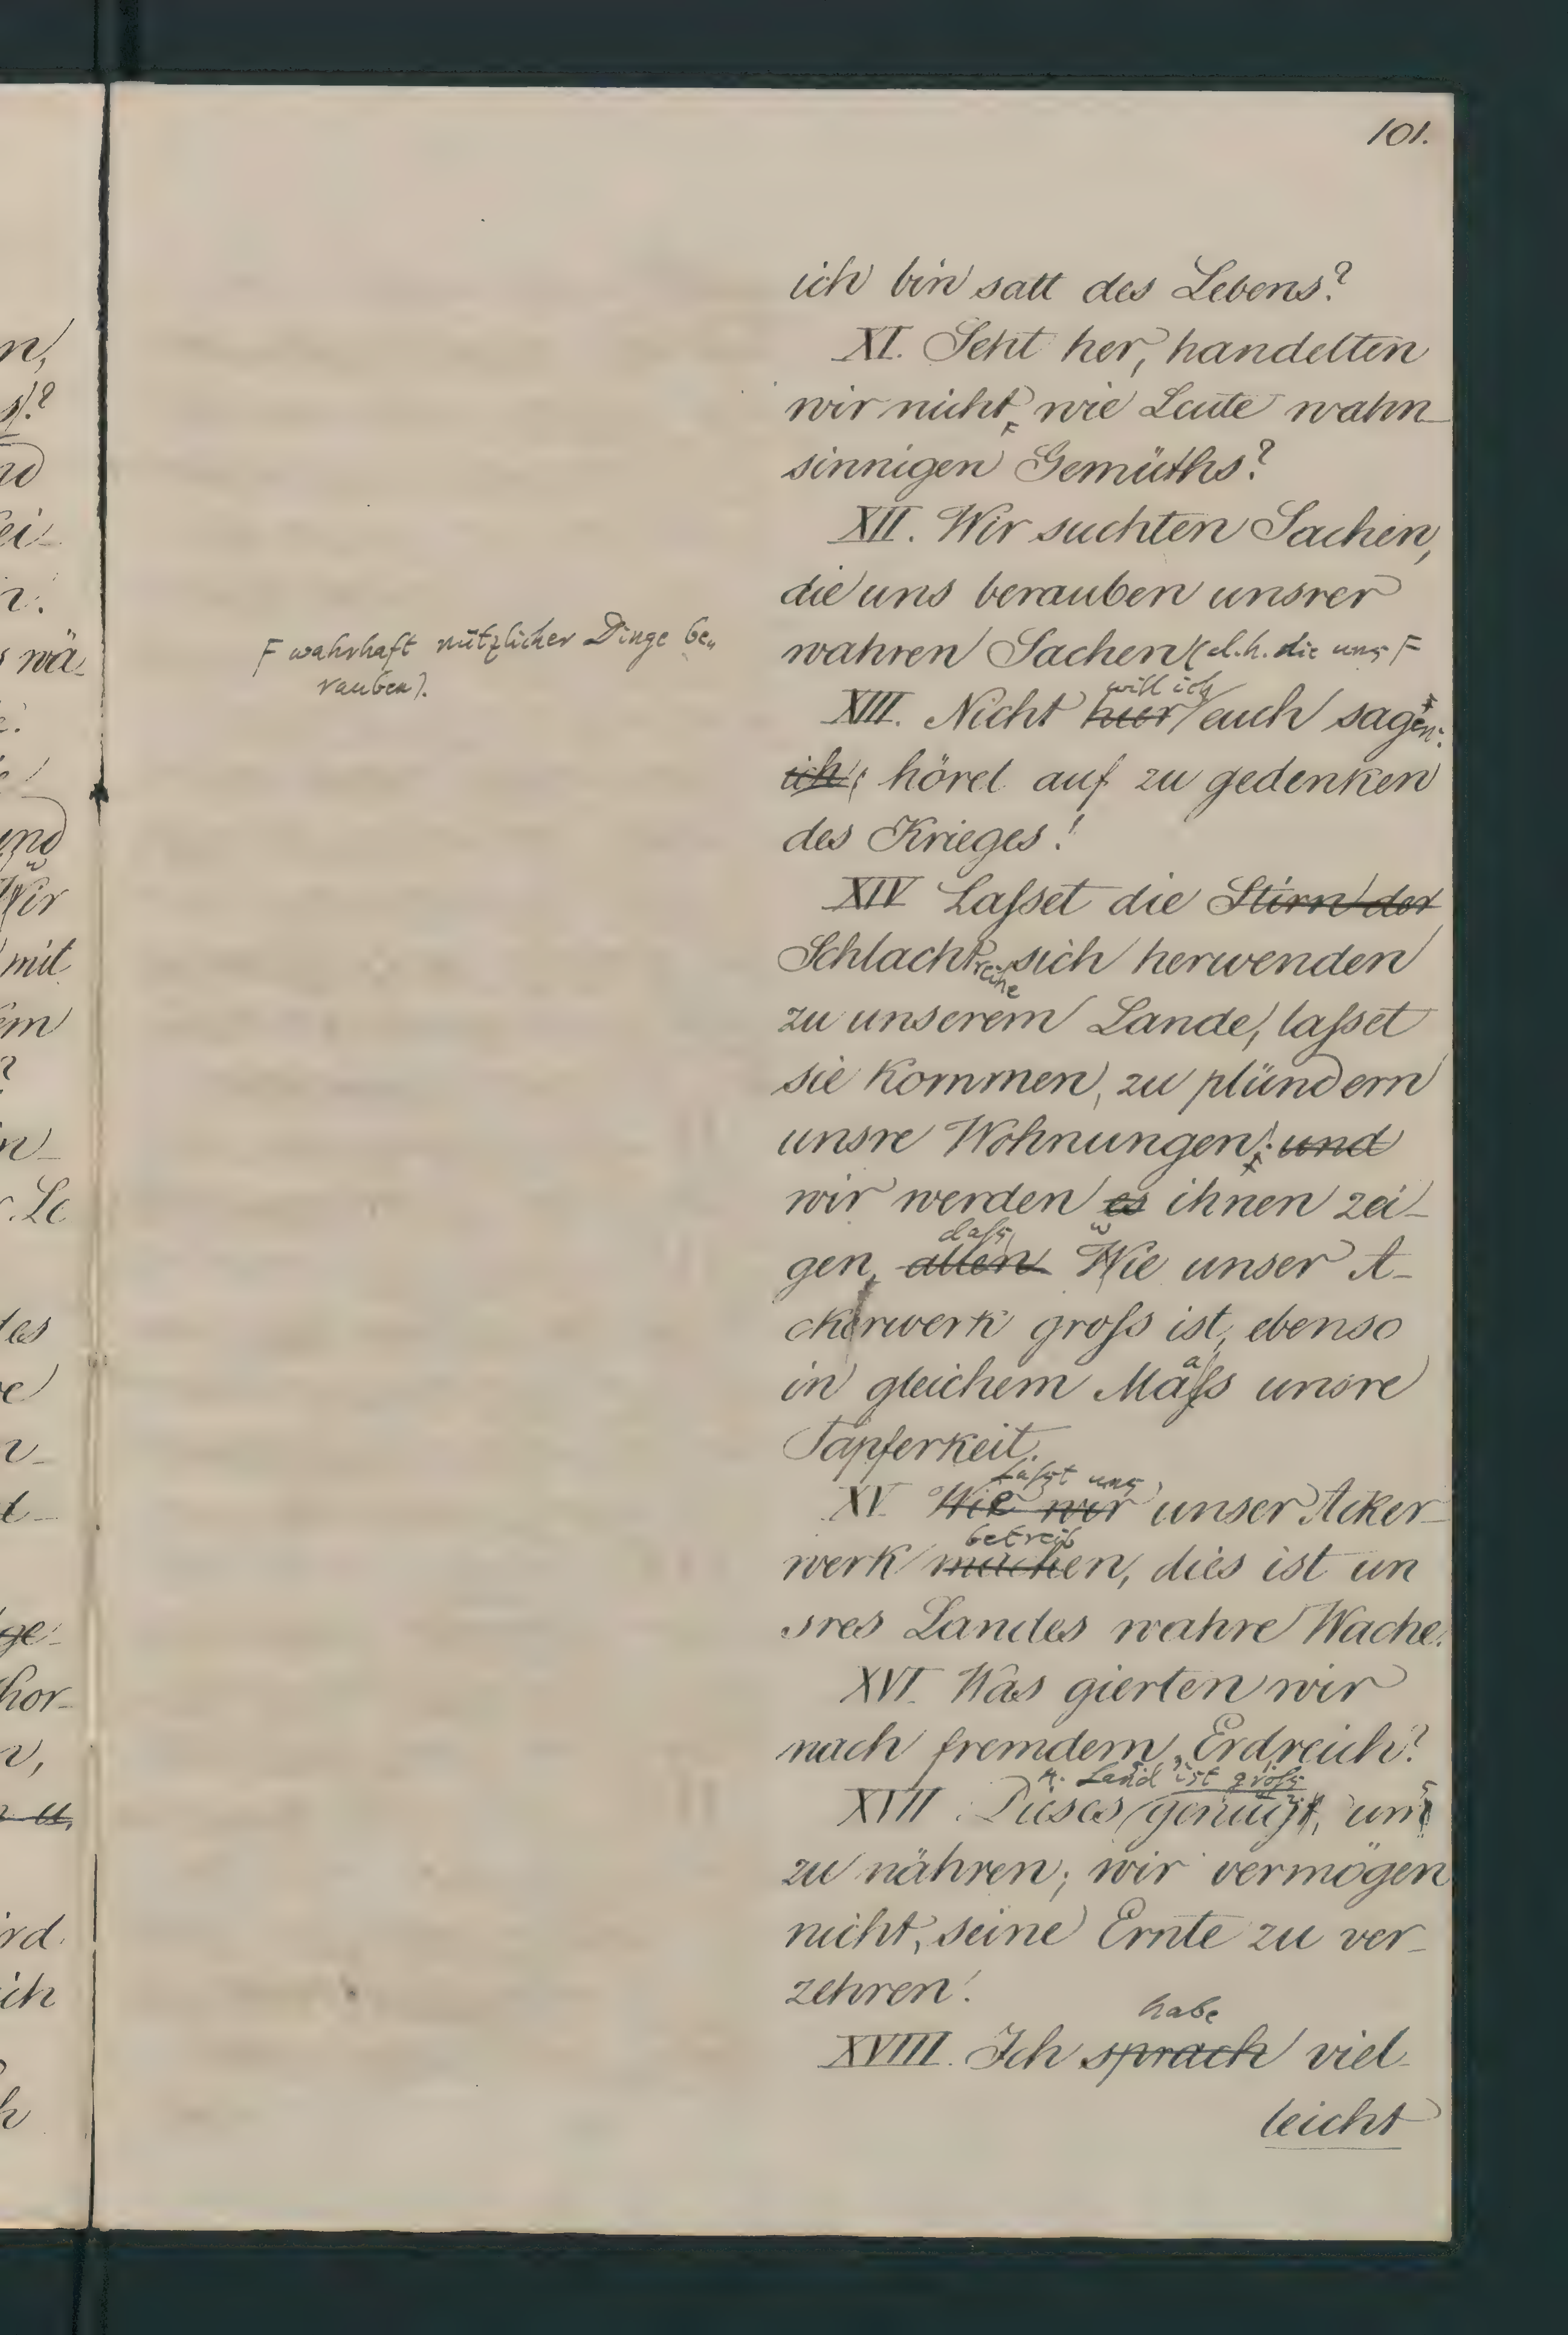 101.
ich bin satt des Lebens?
XI. Seht her, handelten
wir nicht, wie Leute wahn-
sinnigen Gemüths?
XII. Wir suchten Sachen,
die uns berauben unsrer
wahren Sachen (d.h. die uns F
F wahrhaft nützlicher Dinge be„
rauben).
will ich
XIII. Nicht hier euch sagen:
ich; höret auf zu gedenken
des Krieges!
XIV Lasset die Stirn der
Schlachtreihe sich herwenden
zu unserem Lande, lasset
sie kommen, zu plündern
unsre Wohnungen; und
wir werden es ihnen zei-
dass
gen, allen wie unser A-
ckerwerk gross ist, ebenso
in gleichem Mass unsre
Tapferkeit.
Lasst uns
XV. Wie wir unser Acker-
betreib
werk machen, dies ist un
sres Landes wahre Wache.
XVI. Was gierten wir
nach fremdem Erdreich?
u. Land ist gross
XVII. Dieses genügt, uns
zu nähren; wir vermögen
nicht, seine Ernte zu ver-
zehren!
habe
XVIII. Ich sprach viel-
leicht
n,
s)?
nd
ei-
n.
wä-
und
w
Wir
mit
em
?
n-
Le
des
e
n-
t-
ge-
hor-
n,
u,
ird
ich
h